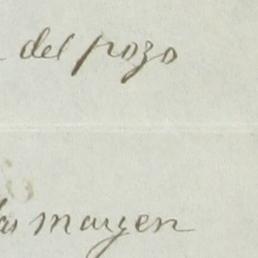 del pozo
las margen